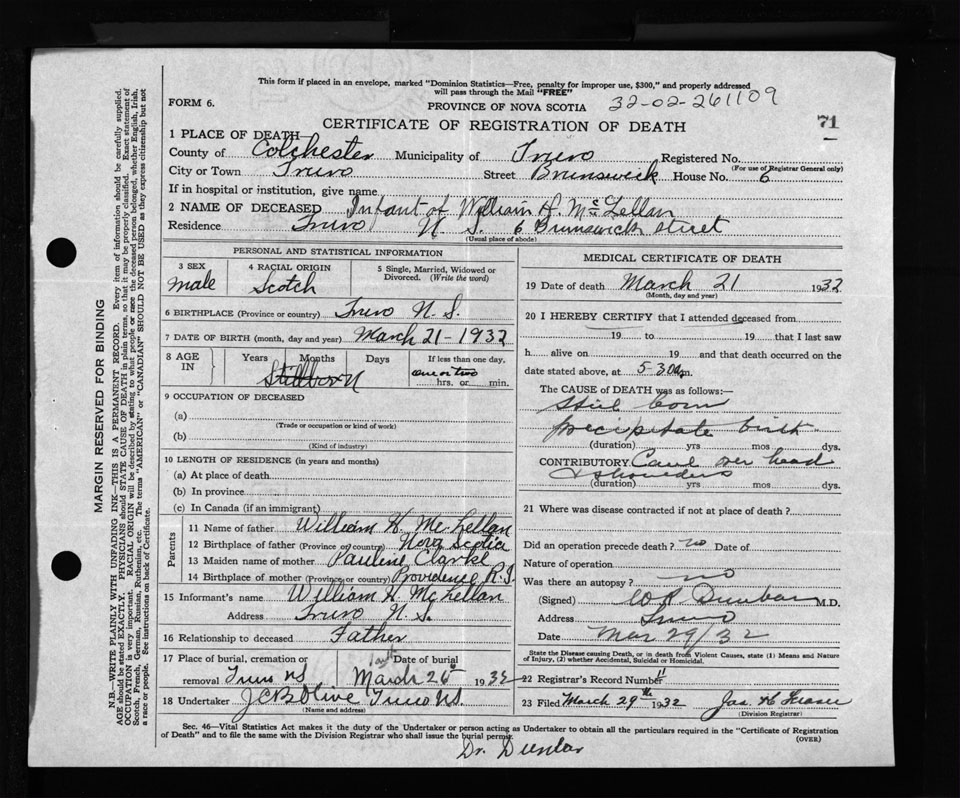 This form if placed in an envelope, marked "Dominion Statistics—Free, penalty for improper use, $300," and properly addressed
will pass through the Mail "FREE"
FORM 6.
PROVINCE OF NOVA SCOTIA 32-02-261109
CERTIFICATE OF REGISTRATION OF DEATH
71
1 PLACE OF DEATH—
County of Colchester Municipality of Truro Registered No.
(For use of Registrar General only)
City or Town Truro Street Brunswick House No. 6
If in hospital or institution, give name
2 NAME OF DECEASED Infant of William H. McLellan
Residence Truro N. S. 6 Brunswick Street
(Usual place of abode)
PERSONAL AND STATISTICAL INFORMATION
3 SEX
male
4 RACIAL ORIGIN
Scotch
5 Single, Married, Widowed or
Divorced. (Write the word)
6 BIRTHPLACE (Province or country) Truro N. S.
7 DATE OF BIRTH (month, day and year) March 21-1932
8 AGE
IN
Years Months Days
StillborN
If less than one day,
one or two
hrs. or min.
9 OCCUPATION OF DECEASED
(a)
(Trade or occupation or kind of work)
(b)
(Kind of industry)
10 LENGTH OF RESIDENCE (in years and months)
(a) At place of death
(b) In province
(c) In Canada (if an immigrant)
Parents
11 Name of father William H. McLellan
12 Birthplace of father (Province or country) Nova Scotia
13 Maiden name of mother Pauline Clarke
14 Birthplace of mother (Province or country) Providence R.I.
15 Informant's name William H. McLellan
Address Truro N. S.
16 Relationship to deceased Father
17 Place of burial, cremation or
removal Truro NS
Date of burial
March 26 1932
18 Undertaker J C B Olive Truro N.S.
(Name and address)
MEDICAL CERTIFICATE OF DEATH
19 Date of death March 21 1932
(Month, day and year)
20 I HEREBY CERTIFY that I attended deceased from
19 to 19 that I last saw
h alive on 19 and that death occurred on
date stated above, at 5-30a m.
The CAUSE of DEATH was as follows:—
Still born
precipitate birth
(duration) yrs mos dys.
CONTRIBUTORY Caul over head
& shoulders
(duration) yrs mos dys.
21 Where was disease contracted if not at place of death?
Did an operation precede death? no Date of
Nature of operation
Was there an autopsy? no
(Signed) Dunbar M.D.
Address Truro
Date Mar 29/32
State the Disease causing Death, or in death from Violent Causes, state (1) Means and Nature
of Injury, (2) whether Accidental, Suicidal or Homicidal.
22 Registrar's Record Number 11
23 Filed March 29th 1932 Jas H Fraser
(Division Registrar)
Sec. 46—Vital Statistics Act makes it the duty of the Undertaker or person acting as Undertaker to obtain all the particulars required in the "Certificate of Registration
of Death" and to file the same with the Division Registrar who shall issue the burial permit.
(OVER)
Dr. Dunbar
MARGIN RESERVED FOR BINDING
N.B.—WRITE PLAINLY WITH UNFADING INK—THIS IS A PERMANENT RECORD. Every item of information should be carefully supplied.
AGE should be stated EXACTLY. PHYSICIANS should STATE CAUSE OF DEATH in plain terms, so that it may be properly classified. Exact statement of
OCCUPATION is very important. RACIAL ORIGIN will be described by stating to what people or race the deceased person belonged, whether English, Irish,
Scotch, French, German, Russian, Ruthenian, etc. The terms "AMERICAN" or "CANADIAN" SHOULD NOT BE USED as they express citizenship but not
a race or people. See instructions on back of Certificate.